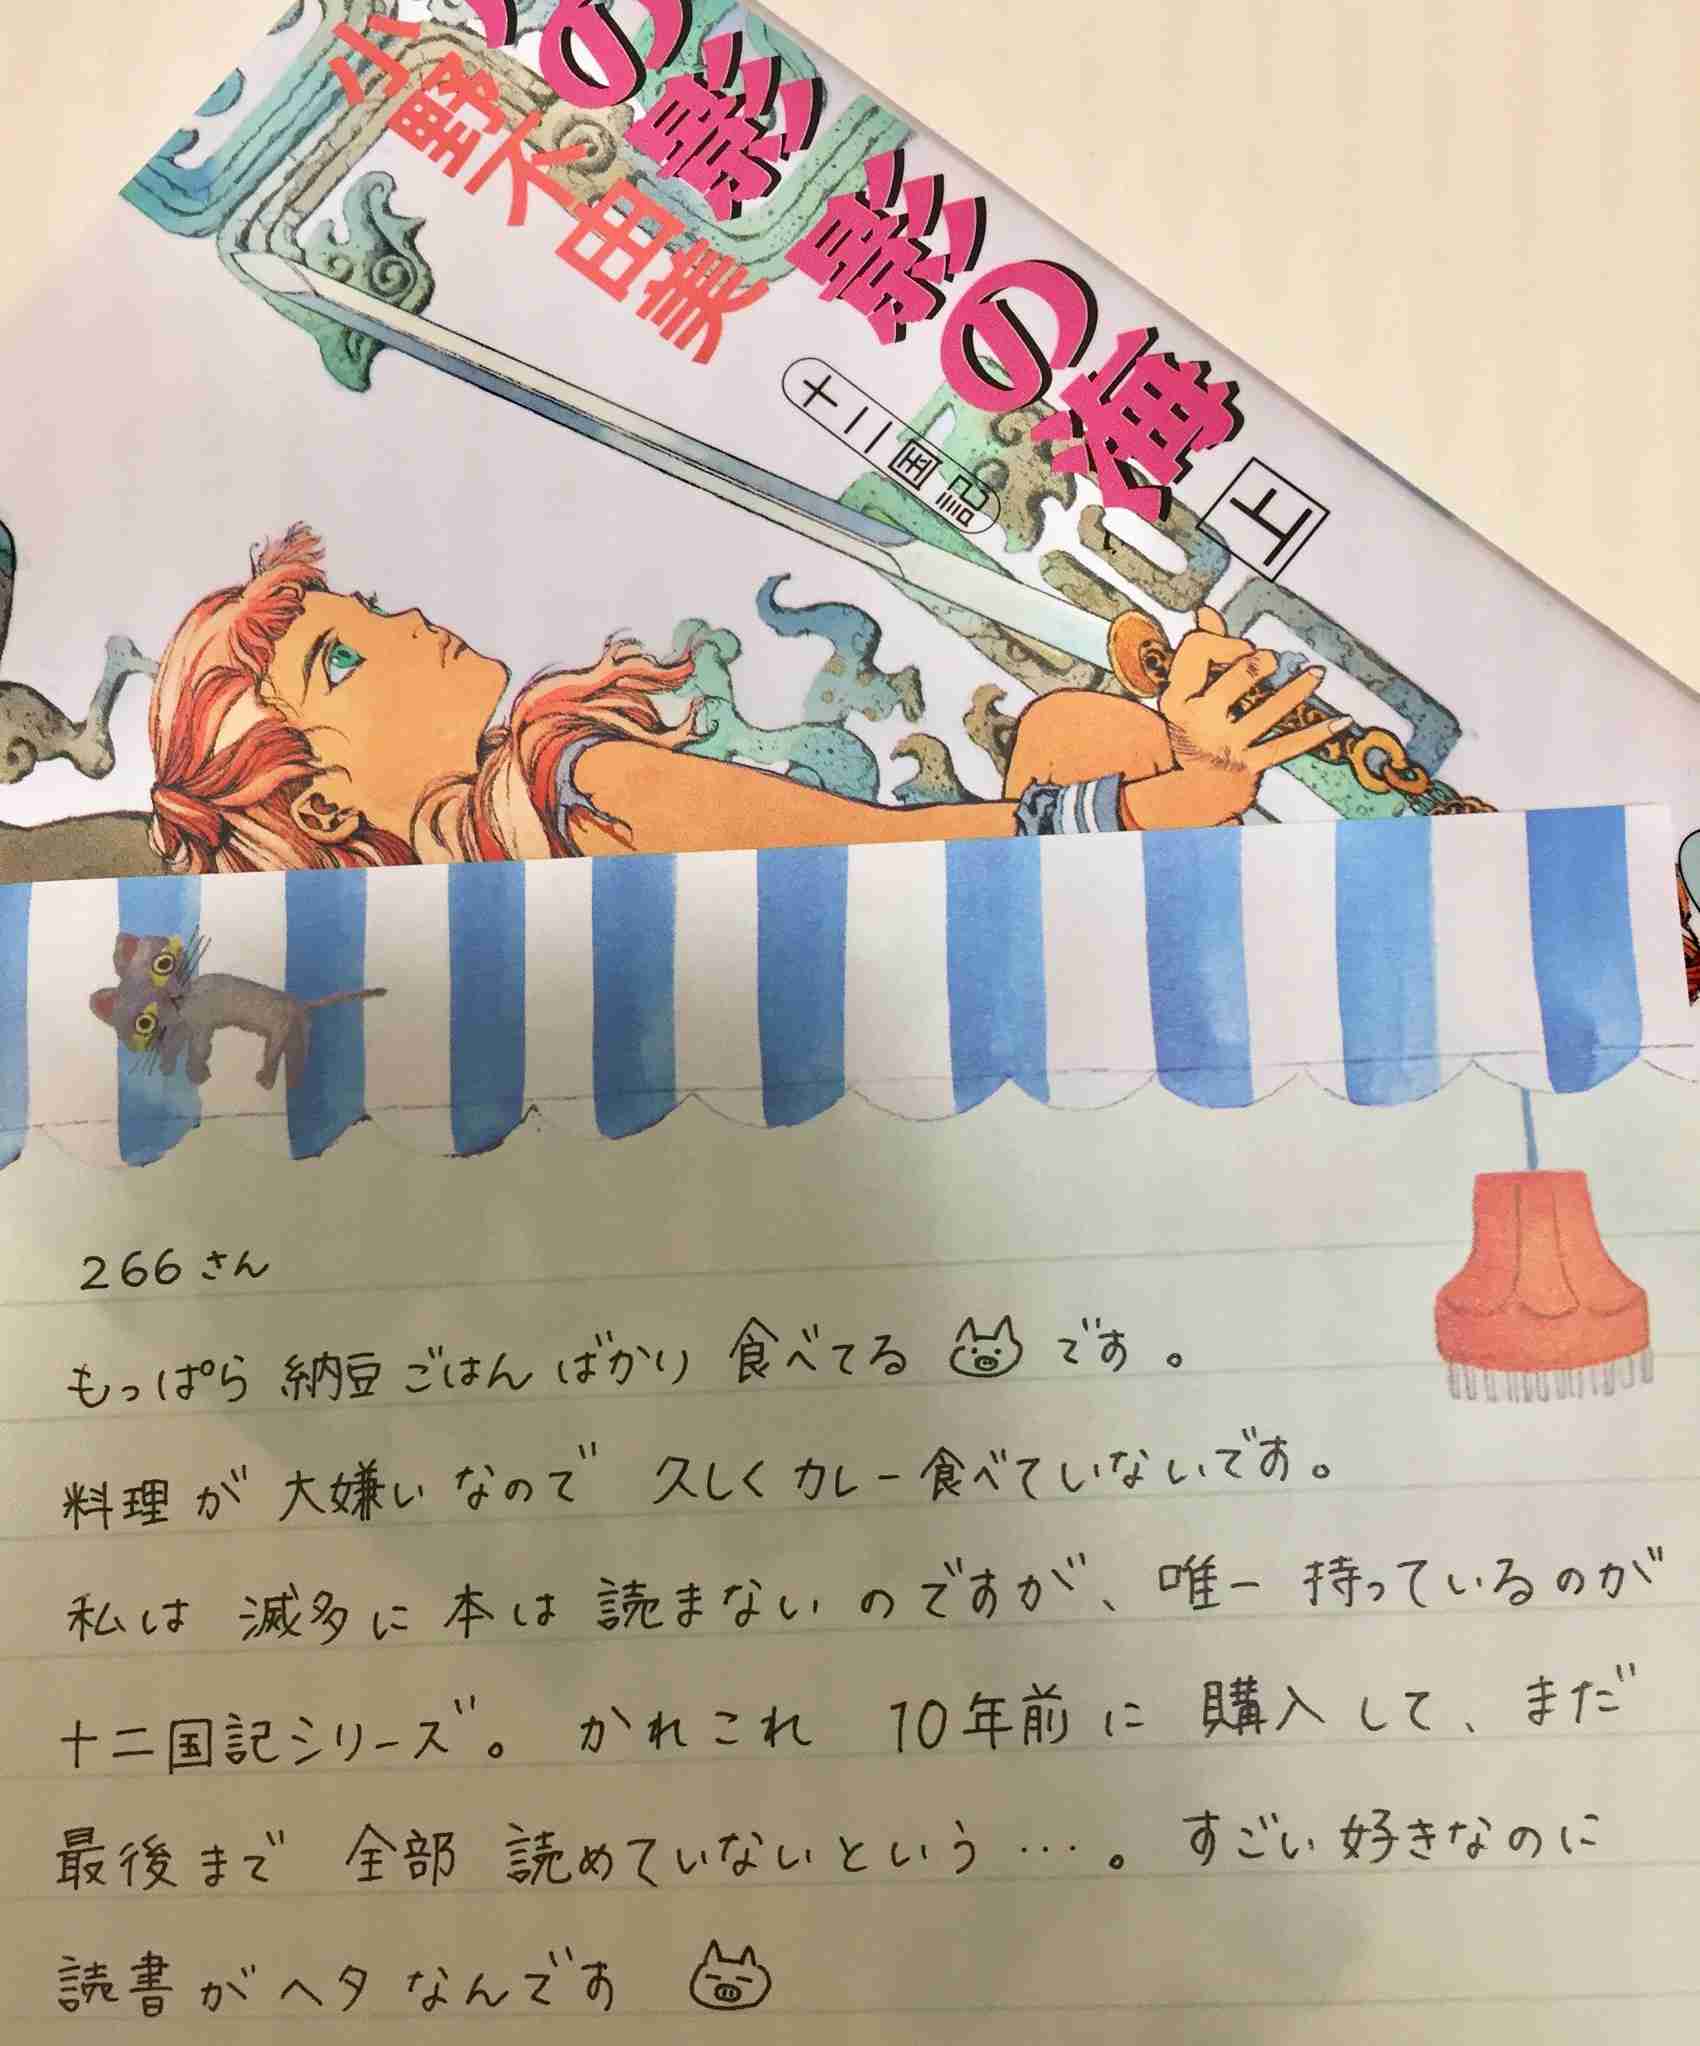 の影 影の海 上
小野不由美
十二国記
266さん
もっぱら 納豆ごはんばかり 食べてる です。
料理が 大嫌いなので 久しくカレー食べていないです。
私は 滅多に 本は 読まないのですが、唯一 持っているのが
十二国記シリーズ。かれこれ 10年前に 購入して、まだ
最後まで 全部 読めていないという…。すごい好きなのに
読書がヘタなんです